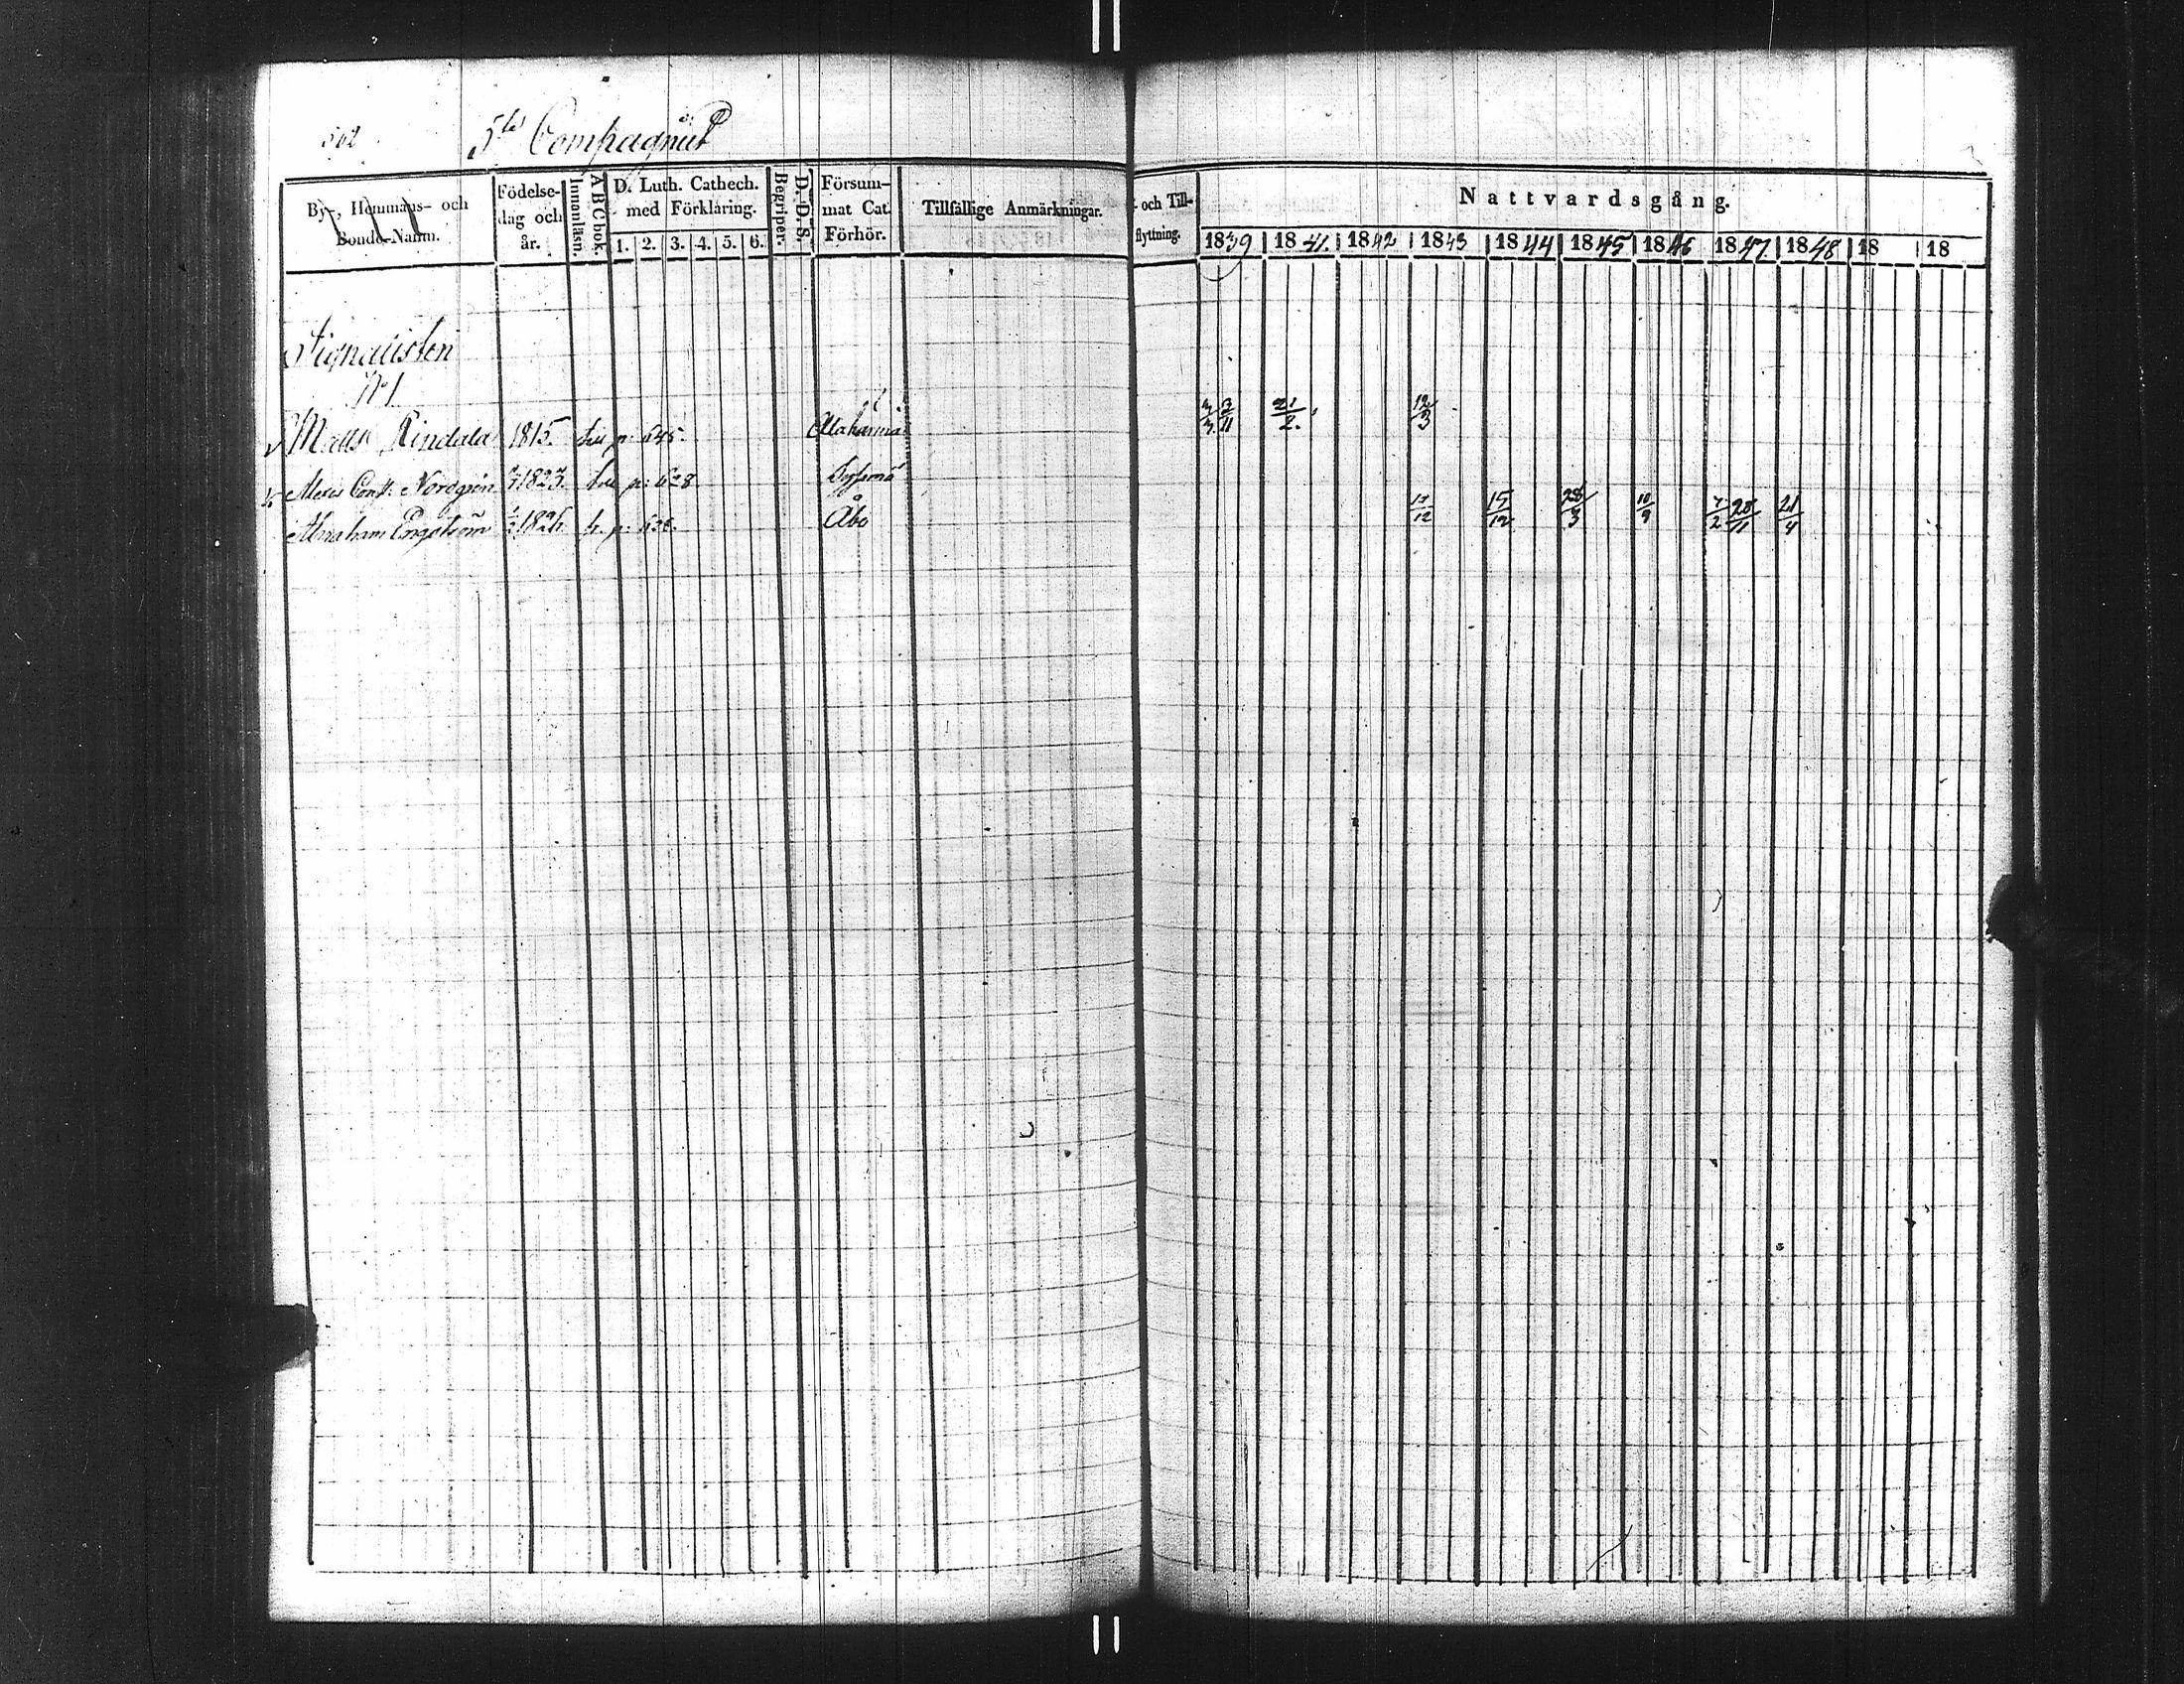 562 5te Compagniet
By-, Hemmans- och Bonde-Namn.
Födelse-dag och år.
Innanläsn.
A B C bok.
D. Luth. Cathech. med Förklaring.
1. 2. 3. 4. 5. 6.
Begriper.
D. D. S.
Försum-mat Cat. Förhör.
Tillfällige Anmärkningar.
- och Till-flyttning.
Nattvardsgång.
1839 1841. 1842 1843 1844 1845 1846 1847. 1848 18 18
Signalisten
No 1
Matts Rindala 1815. se p: 645. Alahärmä 3/11 21/2. 12/3
Const: Nordgren 1823. se p: 628 Sysmä
Abraham Engström 1826. p: Åbo 17/12 15/12 28/3 10/9 7/2 28/11 21/4